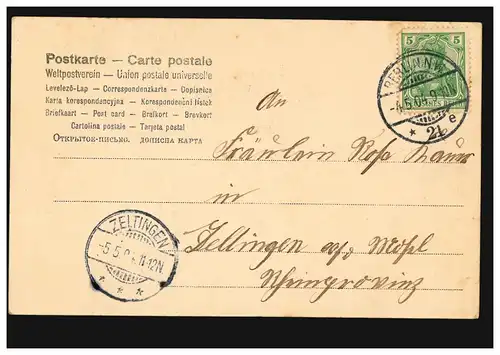 Postkarte – Carte postale
Weltpostverein – Union postale universelle
Levelező-Lap – Correspondenzkarte – Dopisnice
Karta korespondencyjna – Korespondenční lístek
Briefkaart – Post card – Brefkort – Brevkort
Cartolina postale – Tarjeta postal
Открытое-письмо. дописна карта
5 5
BERLIN N.W.
-4.5.0
* 21 e
An
Fräulein Rosa
in
Zeltingen a/d Mosel
Rheinprovinz
ZELTINGEN
-5.5.0 11-12N.
* * *